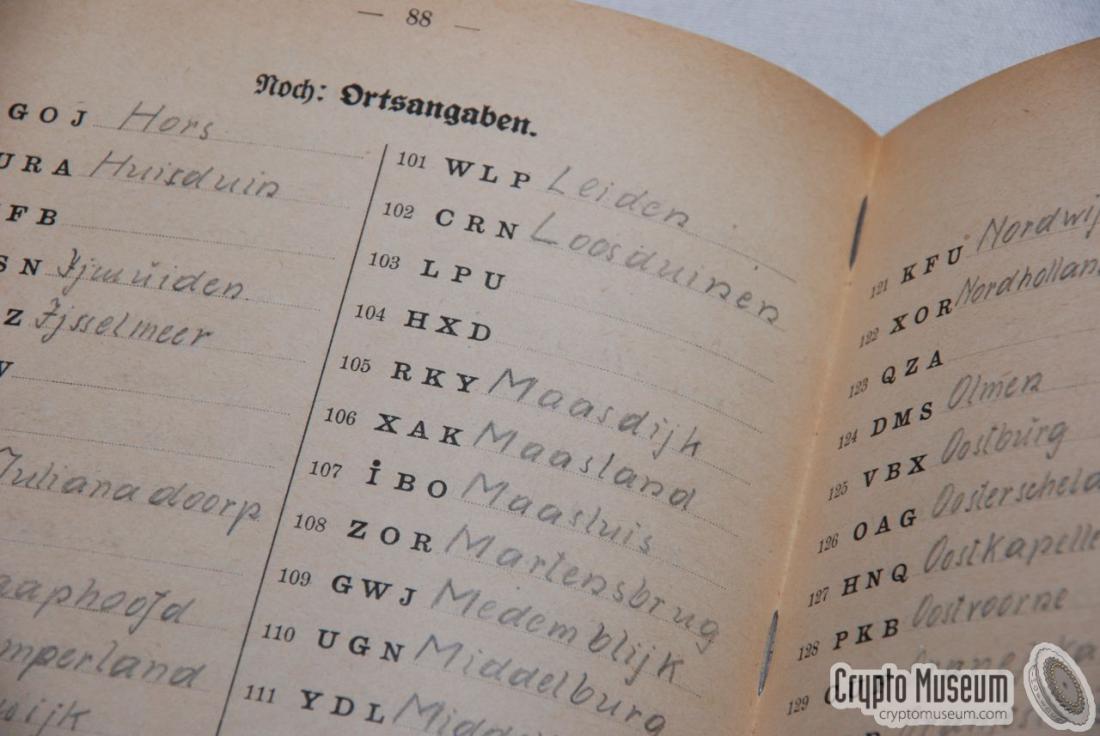 — 88 —
Noch: Ortsangaben.
GOJ Hors
URA Huisduin
FB
SN Ijmuiden
Z Ijsselmeer
Julianadoorp
101 WLP Leiden
102 CRN Loosduinen
103 LPU
104 HXD
105 RKY Maasdijk
106 XAK Maasland
107 İBO Maasluis
108 ZOR Martensbrug
109 GWJ Medemblijk
110 UGN Middelburg
111 YDL
121 KFU
122 XOR Nordholland
123 QZA
124 DMS Olmen
125 VBX Oostburg
126 OAG Oosterscheld
127 HNQ Oostkapelle
128 PKB Oostvoorne
129
Crypto Museum
cryptomuseum.com